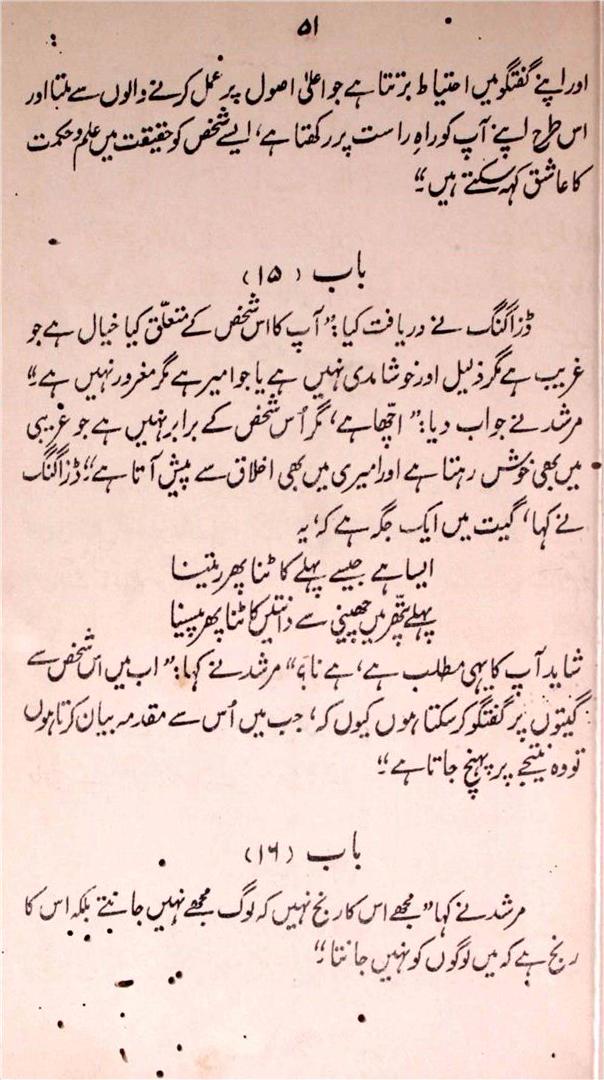 ۵۱
اور اپنے گفتگو میں احتیاط برتتا ہے جو اعلیٰ اصول پر عمل کرنے والوں سے ملتا اور
اس طرح اپنے آپ کو راہِ راست پر رکھتا ہے، ایسے شخص کو حقیقت میں علم و حکمت
کا عاشق کہہ سکتے ہیں۔“
باب (۱۵)
ڈزاگنگ نے دریافت کیا: ”آپ کا اس شخص کے متعلّق کیا خیال ہے جو
غریب ہے مگر ذلیل اور خوشامدی نہیں ہے یا جو امیر ہے مگر مغرور نہیں ہے۔“
مرشد نے جواب دیا: ”اچّھا ہے، مگر اُس شخص کے برابر نہیں ہے جو غریبی
میں بھی خوش رہتا ہے اور امیری میں بھی اخلاق سے پیش آتا ہے۔“ ڈزاگنگ
نے کہا، گیت میں ایک جگہ ہے کہ، یہ
ایسا ہے جیسے پہلے کاٹنا پھر ریتینا
پہلے پتّھر میں چھینی سے ذانتیں کاٹنا پھر پیسنا
شاید آپ کا یہی مطلب ہے، ہے نا؟“ مرشد نے کہا: ”اب میں اس شخص سے
گیتوں پر گفتگو کر سکتا ہوں کیوں کہ، جب میں اُس سے مقدمہ بیان کرتا ہوں
تو وہ نتیجے پر پہنچ جاتا ہے۔“
باب (۱۶)
مرشد نے کہا ”مجھے اس کا رنج نہیں کہ لوگ مجھے نہیں جانتے بلکہ اس کا
رنج ہے کہ میں لوگوں کو نہیں جانتا۔“